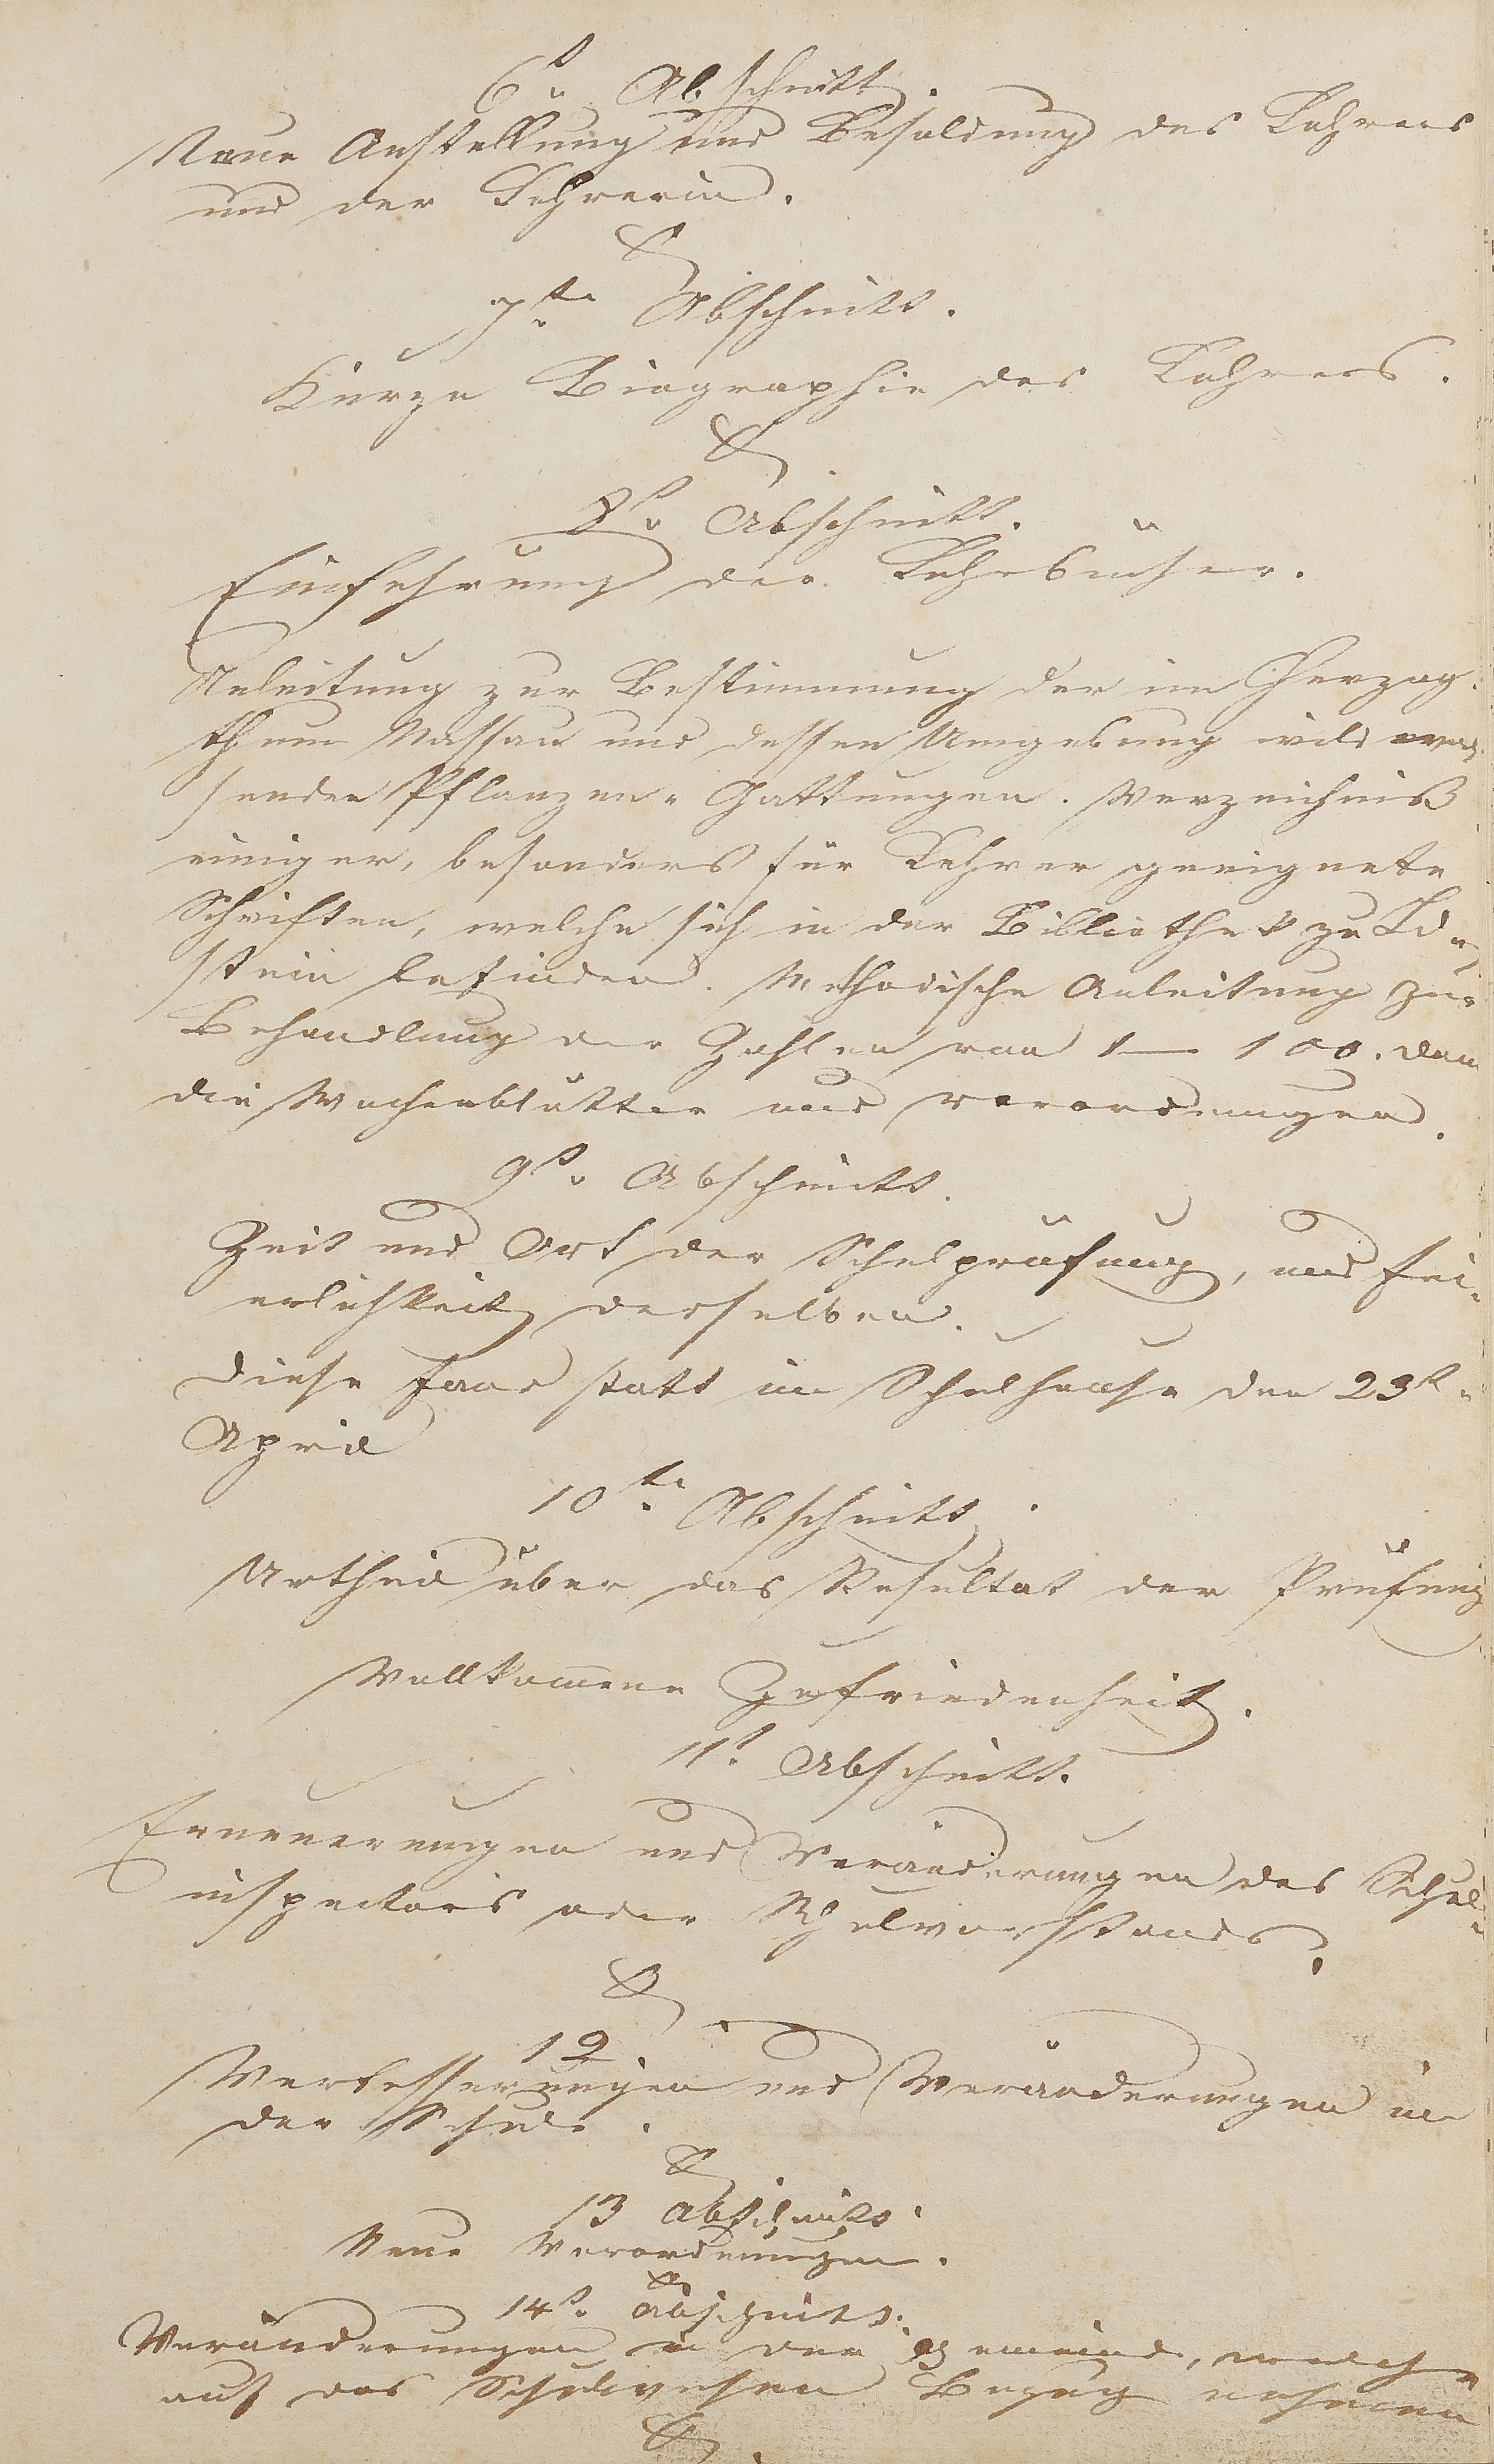 6t. Abschnitt.
Neue Anstellung und Besoldung des Lehrers
und der Lehrerin.
7te. Abschnitt.
Kurze Biographie des Lehrers.
8t. Abschnitt.
Einfehrung der Lehrbücher.
Anleitung zur Bestimmung der im Herzog-
thum Nassau und dessen Umgebung wild wach-
senden Pflanzen-Gattungen. Verzeichniß
einiger, besonders für Lehrer geeignete
Schriften, welche sich in der Bibliothek zu Id-
stein befinden. Methodische Anleitung zur
Behandlung der Zahlen von 1 — 100. dann
die Wochenblätter und Verordnungen.
9t. Abschnitt.
Zeit und Ort der Schulprüfung, und Fei-
erlichkeit derselben.
Diese fand statt im Schulhause den 23t.
April
10te. Abschnitt.
Urtheil über das Resultat der Prüfung
Vollkommene Zufriedenheit.
11t. Abschnitt.
Erneuerungen und Veränderungen des Schul-
inspectors oder Schulvorstands.
12.
Verbesserungen und Veränderungen in
der Schule.
13 Abschnitt.
Neue Verordnungen.
14t. Abschnitt.
Veränderungen in der Gemeinde, welche
auf das Schulwesen Bezug nehmen